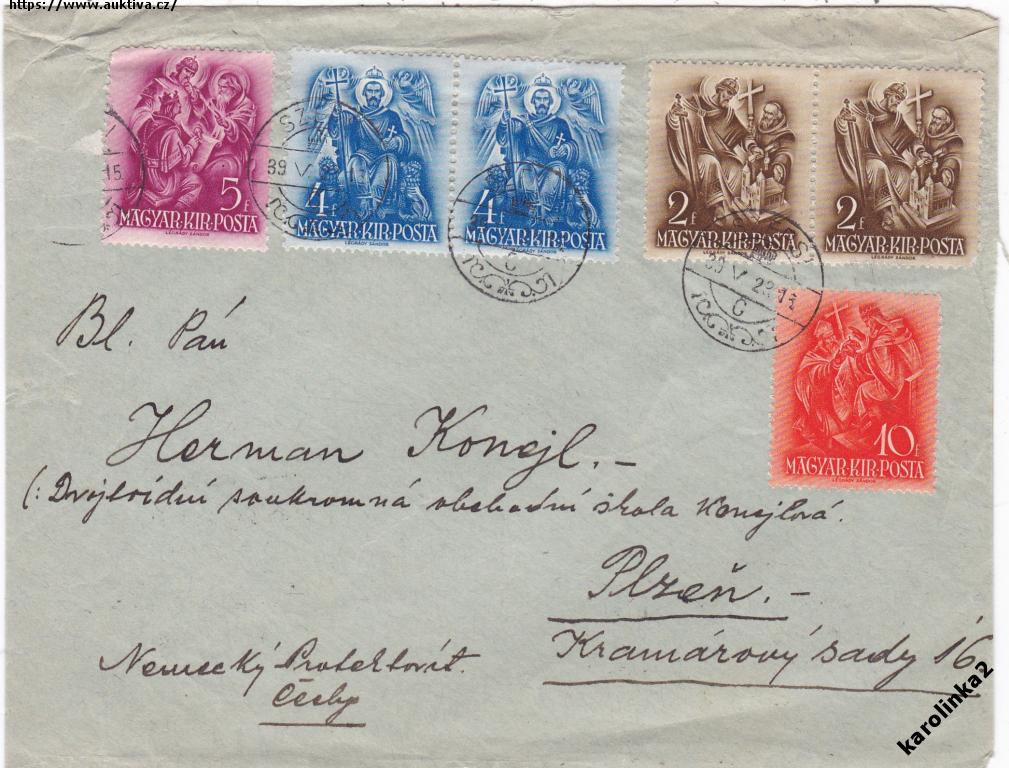 https://www.auktiva.cz/
5f
MAGYAR·KIR·POSTA
LÉGRÁDY SÁNDOR
4f
MAGYAR·KIR·POSTA
LÉGRÁDY SÁNDOR
4f
MAGYAR·KIR·POSTA
LÉGRÁDY SÁNDOR
2f
MAGYAR·KIR·POSTA
LÉGRÁDY SÁNDOR
2f
MAGYAR·KIR·POSTA
LÉGRÁDY SÁNDOR
39 V
C
39 V 23
C
10f
MAGYAR·KIR·POSTA
LÉGRÁDY SÁNDOR
Bl. Pán
Herman Konejl.-
(: Dvojtoidní soukromná obchodní škola Konejlová.
Plzeň.-
Kramárový sady 16
Nemecký Protektorát
Čechy
karolinka2